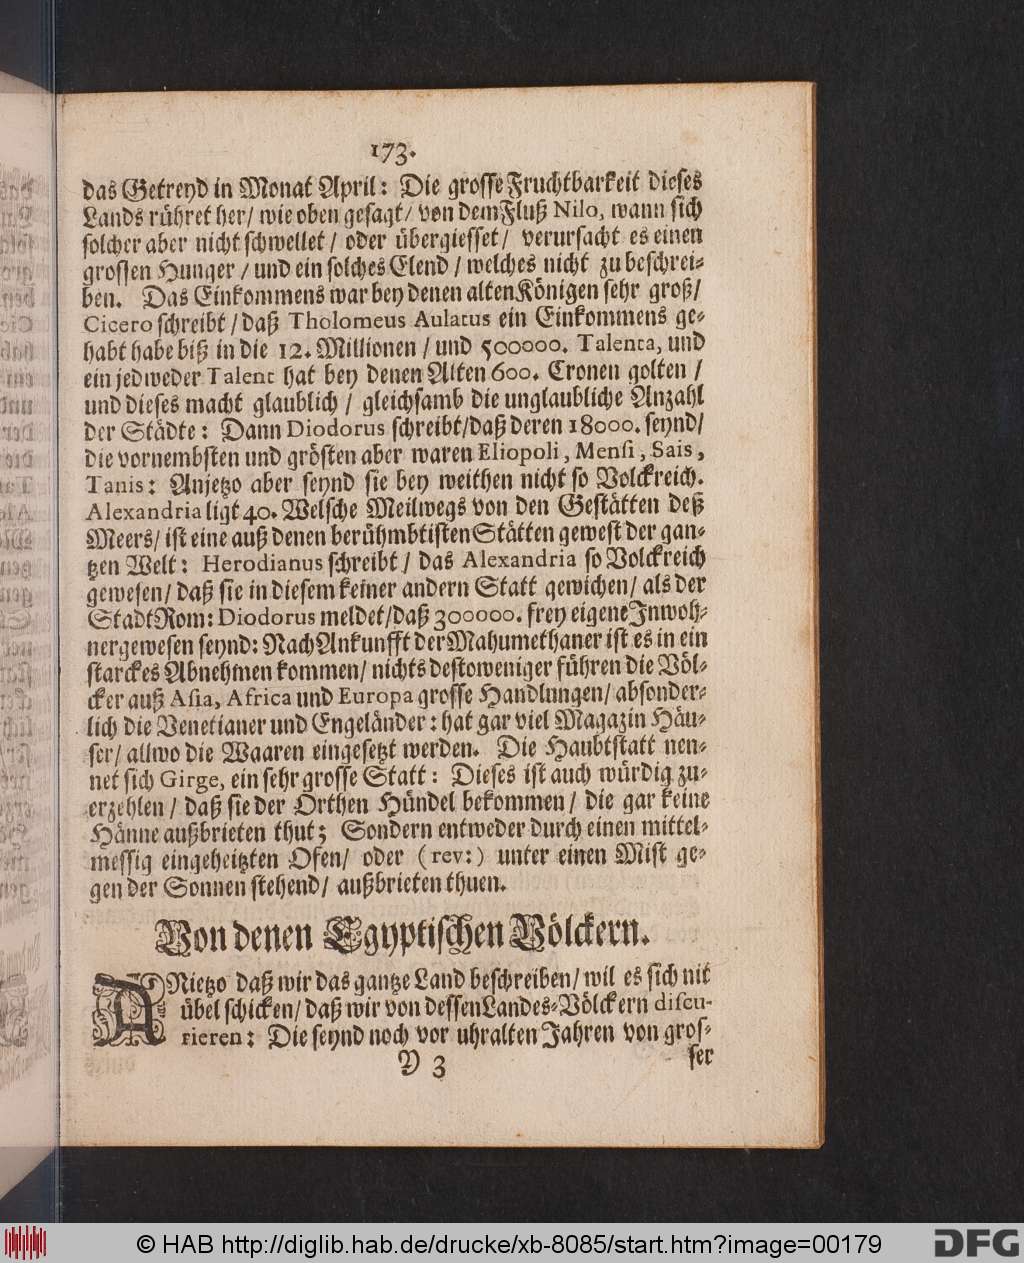 173.
das Getreyd in Monat April: Die grosse Fruchtbarkeit dieses
Lands rühret her/ wie oben gesagt/ von dem Fluß Nilo, wann sich
solcher aber nicht schwellet/ oder übergiesset/ verursacht es einen
grossen Hunger/ und ein solches Elend/ welches nicht zu beschrei-
ben. Das Einkommens war bey denen alten Königen sehr groß/
Cicero schreibt/ daß Tholomeus Aulatus ein Einkommens ge-
habt habe biß in die 12. Millionen/ und 500000. Talenta, und
ein jedweder Talent hat bey denen Alten 600. Cronen golten/
und dieses macht glaublich/ gleichsamb die unglaubliche Anzahl
der Städte: Dann Diodorus schreibt/ daß deren 18000. seynd/
die vornembsten und grösten aber waren Eliopoli, Mensi, Sais,
Tanis: Anjetzo aber seynd sie bey weithen nicht so Volckreich.
Alexandria ligt 40. Welsche Meilwegs von den Gestätten deß
Meers/ ist eine auß denen berühmbtisten Stätten gewest der gan-
tzen Welt: Herodianus schreibt/ das Alexandria so Volckreich
gewesen/ daß sie in diesem keiner andern Statt gewichen/ als der
Stadt Rom: Diodorus meldet/ daß 300000. frey eigene Inwoh-
ner gewesen seynd: Nach Ankunfft der Mahumethaner ist es in ein
starckes Abnehmen kommen/ nichts destoweniger führen die Völ-
cker auß Asia, Africa und Europa grosse Handlungen/ absonder-
lich die Venetianer und Engeländer: hat gar viel Magazin Häu-
ser/ allwo die Waaren eingesetzt werden. Die Haubtstatt nen-
net sich Girge, ein sehr grosse Statt: Dieses ist auch würdig zu-
erzehlen/ daß sie der Orthen Hündel bekommen/ die gar keine
Hänne außbrieten thut; Sondern entweder durch einen mittel-
messig eingeheitzten Ofen/ oder (rev:) unter einen Mist ge-
gen der Sonnen stehend/ außbrieten thuen.
Von denen Egyptischen Völckern.
ANietzo daß wir das gantze Land beschreiben/ wil es sich nit
übel schicken/ daß wir von dessen Landes-Völckern discu-
rieren: Die seynd noch vor uhralten Jahren von gros-
Y 3 ser
© HAB http://diglib.hab.de/drucke/xb-8085/start.htm?image=00179
DFG